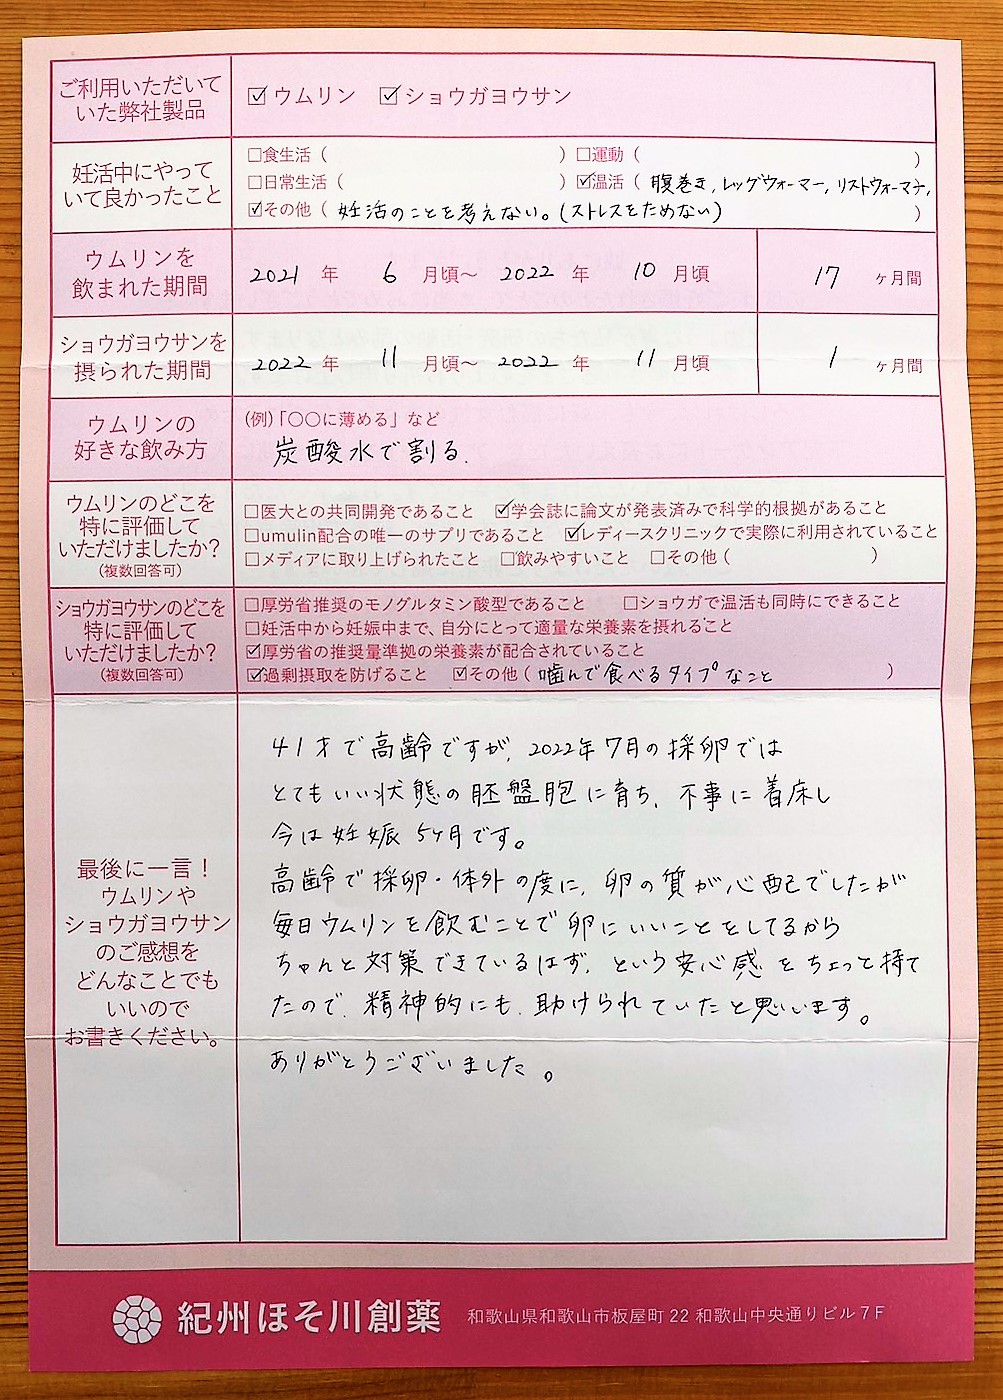 ご利用いただいて
いた弊社製品
☑ウムリン ☑ショウガヨウサン
妊活中にやって
いて良かったこと
□食生活( ) □運動( )
□日常生活( ) ☑温活( 腹巻き, レッグウォーマー, リストウォーマー,
☑その他( 妊活のことを考えない。(ストレスをためない) )
ウムリンを
飲まれた期間
2021 年 6 月頃〜 2022 年 10 月頃 17 ヶ月間
ショウガヨウサンを
摂られた期間
2022 年 11 月頃〜 2022 年 11 月頃 1 ヶ月間
ウムリンの
好きな飲み方
(例)「〇〇に薄める」など
炭酸水で割る.
ウムリンのどこを
特に評価して
いただけましたか?
(複数回答可)
□医大との共同開発であること ☑学会誌に論文が発表済みで科学的根拠があること
□umulin配合の唯一のサプリであること ☑レディースクリニックで実際に利用されていること
□メディアに取り上げられたこと □飲みやすいこと □その他( )
ショウガヨウサンのどこを
特に評価して
いただけましたか?
(複数回答可)
□厚労省推奨のモノグルタミン酸型であること □ショウガで温活も同時にできること
□妊活中から妊娠中まで、自分にとって適量な栄養素を摂れること
☑厚労省の推奨量準拠の栄養素が配合されていること
☑過剰摂取を防げること ☑その他( 噛んで食べるタイプなこと )
最後に一言!
ウムリンや
ショウガヨウサン
のご感想を
どんなことでも
いいので
お書きください。
41才で高齢ですが, 2022年7月の採卵では
とてもいい状態の胚盤胞に育ち, 不事に着床し
今は妊娠5ヶ月です。
高齢で採卵・体外の度に, 卵の質が心配でしたが
毎日ウムリンを飲むことで卵にいいことをしてるから
ちゃんと対策できているはず, という安心感をちょっと持て
たので, 精神的にも, 助けられていたと思います。
ありがとうございました。
紀州ほそ川創薬 和歌山県和歌山市板屋町 22 和歌山中央通りビル 7 F